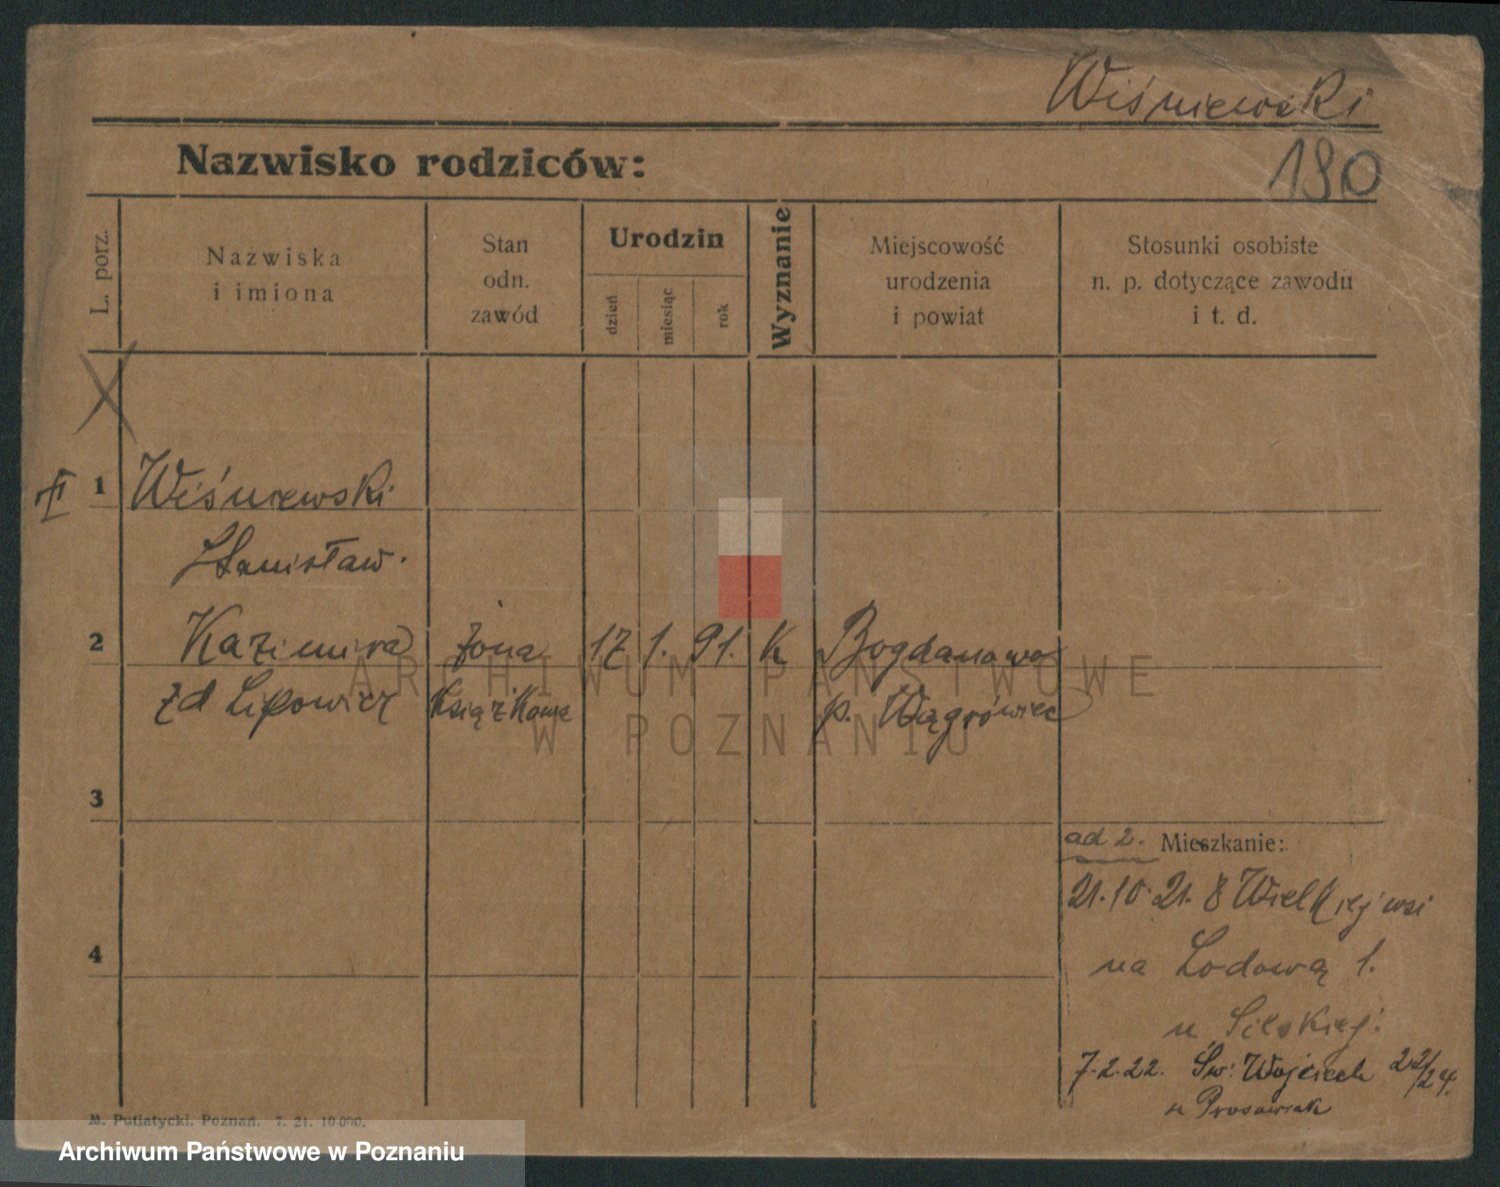 Wiśniewski
Nazwisko rodziców:
190
L. porz.
Nazwiska
i imiona
Stan
odn.
zawód
Urodzin
dzień
miesiąc
rok
Wyznanie
Miejscowość
urodzenia
i powiat
Stosunki osobiste
n. p. dotyczące zawodu
i t. d.
1 Wiśniewski
Stanisław.
2 Kazimira żona 17 1. 91. K Bogdanowo
zd Lipowicz Książkowa p. Wągrówiec
3
ad 2. Mieszkanie:
21.10.21. 8 Wielkiej wsi
4
na Lodową 1.
u
7.2.22. Św: Wojciech 22/24.
u
M. Putiatycki. Poznań. 7. 21. 10 000.
ARCHIWUM PAŃSTWOWE
W POZNANIU
Archiwum Państwowe w Poznaniu